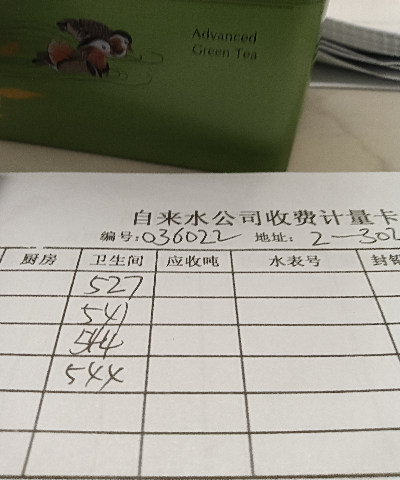 Advanced
Green Tea
自来水公司收费计量卡
编号:036022 地址: 2-302
厨房 卫生间 应收吨 水表号 封铅
527
541
544
544